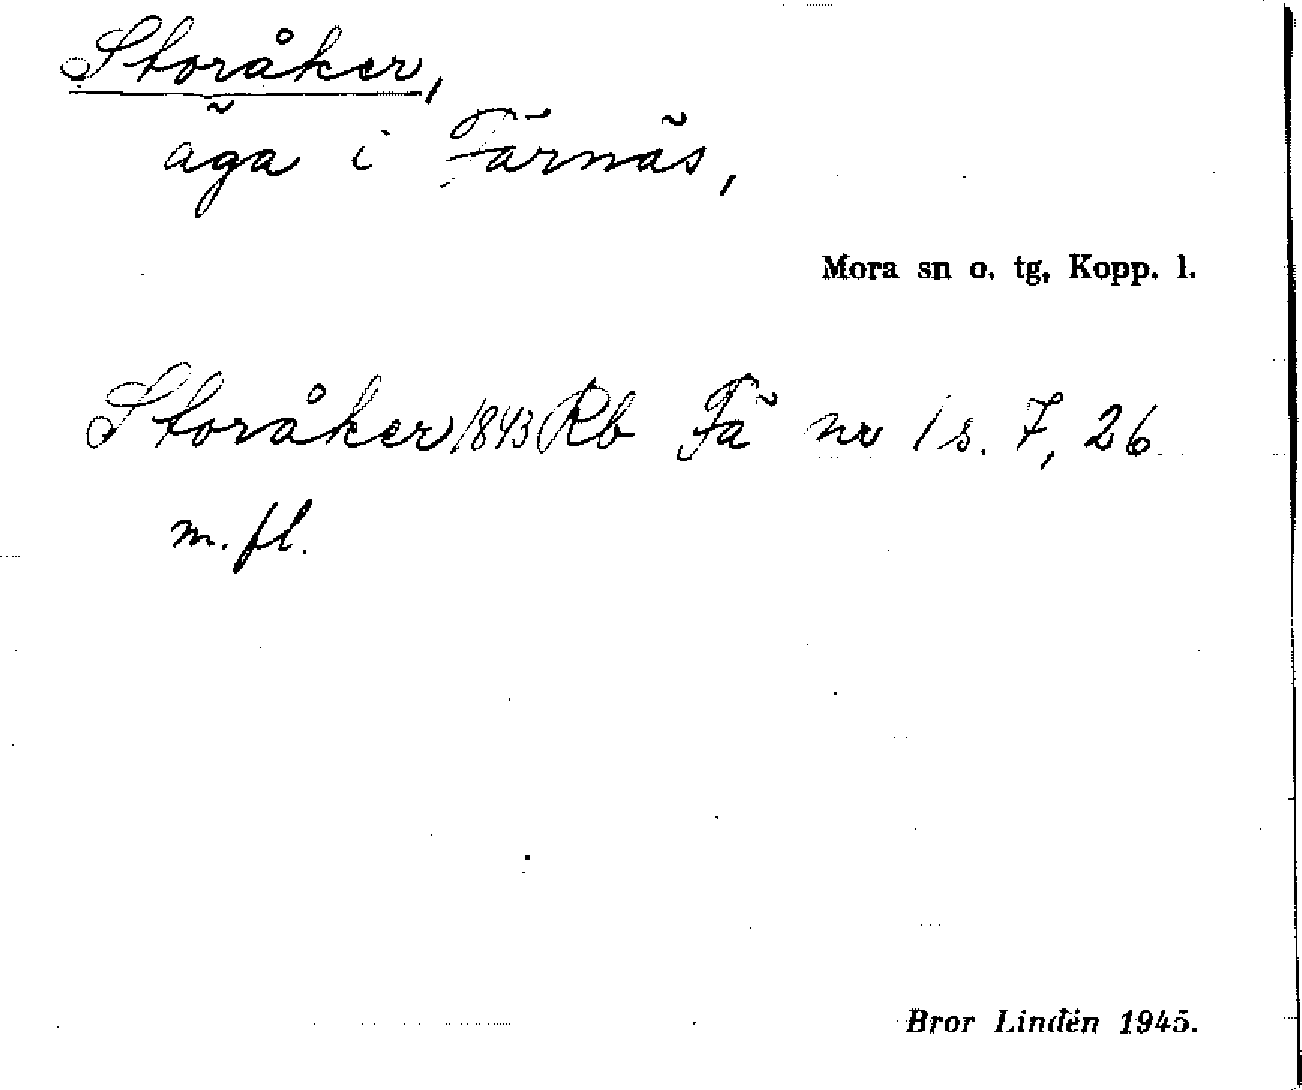 Storåker,
äga i Färnäs,
Mora sn o. tg, Kopp. l.
Storåker 1843 Rb Fä nr 1 s. 7, 26
m. fl.
Bror Lindén 1945.